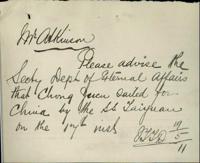 Mr Atkinson
Please advise the
Secty Dept of External Affairs
that Chong Joen sailed for
China by the SS Taiyuan
on the 17th inst
19/5/11